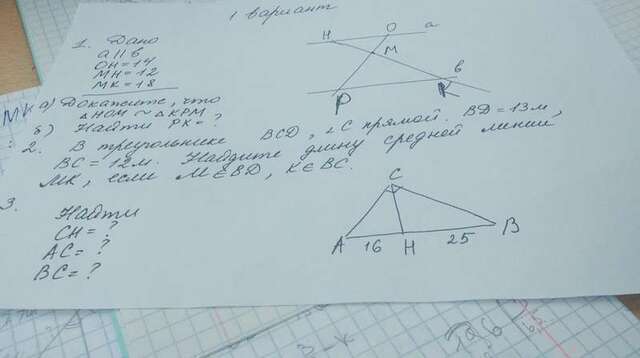 1 вариант
1. Дано
a || b
OH = 14
MH = 12
MK = 18
а) Докажите, что
△HOM ~ △KPM
б) Найти PK = ?
2. В треугольнике BCD, ∠C прямой. BD = 13м,
BC = 12м. Найдите длину средней линии
MK, если M∈BD, K∈BC.
3.
Найти
CH = ?
AC = ?
BC = ?
H O a
M
b
P K
C
A 16 H 25 B
МК